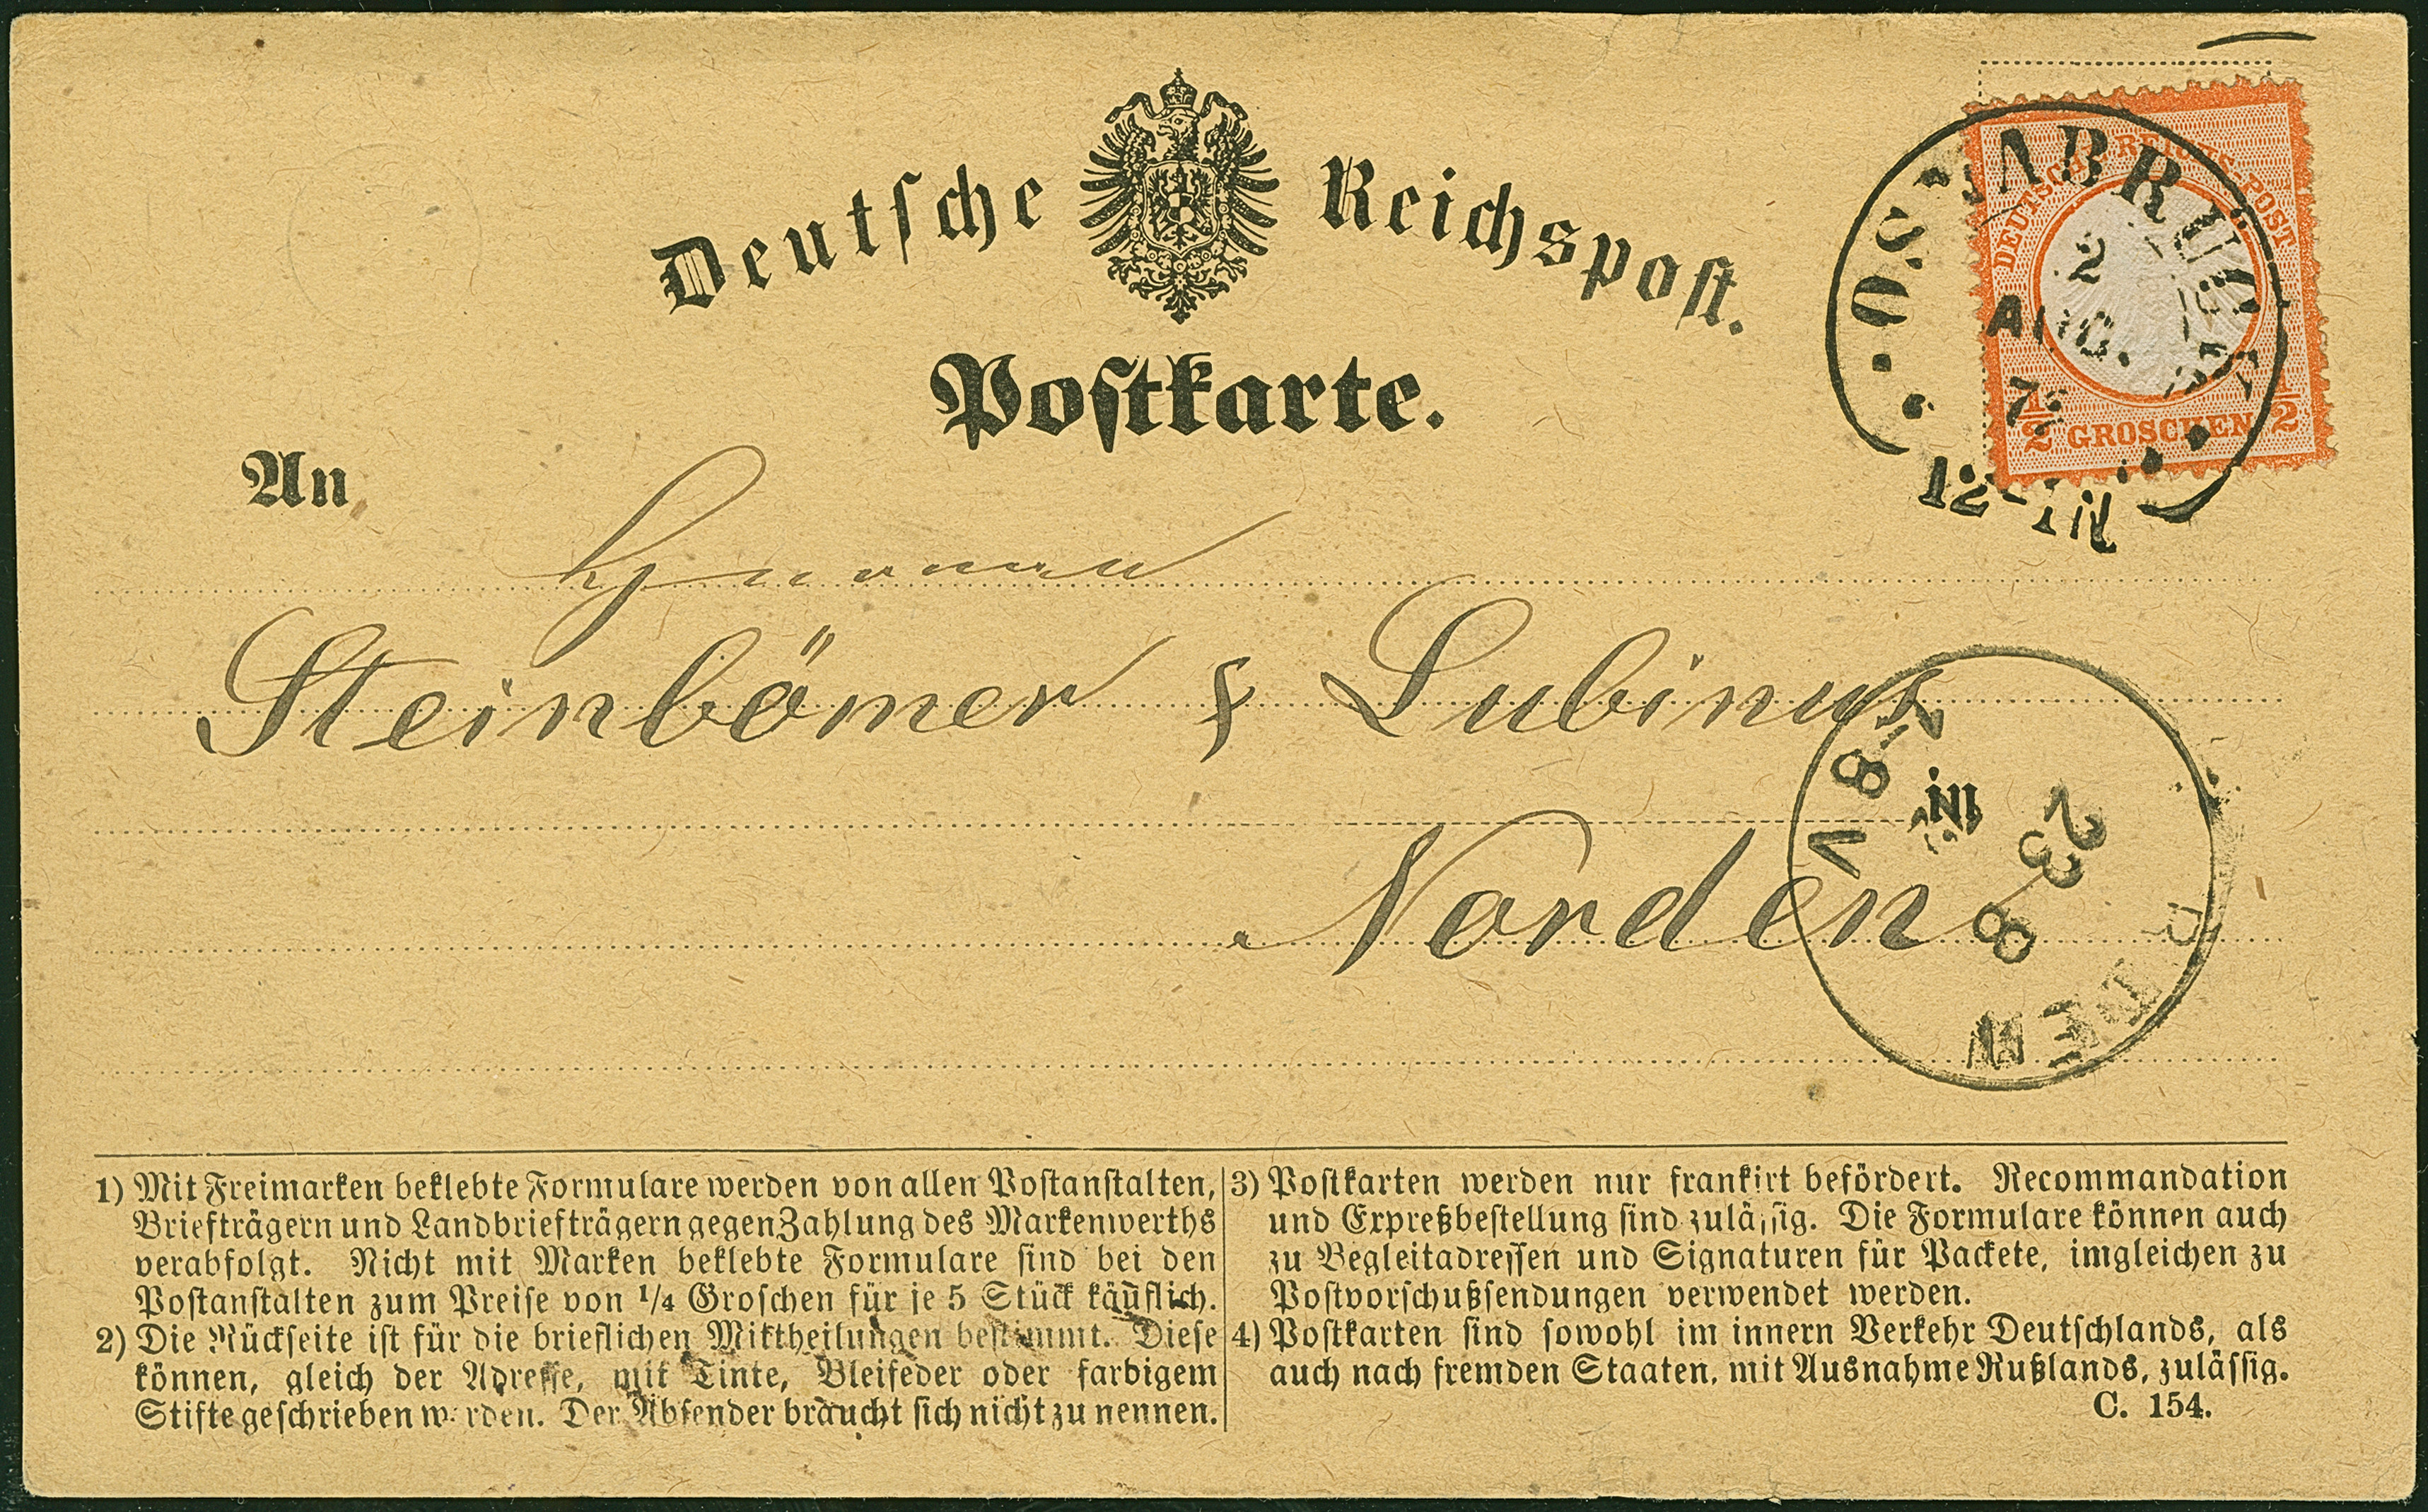 Deutsche Reichspost.
Postkarte.
DEUTSCHE REICHS-POST
1/2 GROSCHEN 1/2
OSNABRÜCK
2
AUG.
12-1N
An
Herren
Steinbömer & Lubinus
Norden
23
8
N
7-8V
1) Mit Freimarken beklebte Formulare werden von allen Postanstalten,
Briefträgern und Landbriefträgern gegen Zahlung des Markenwerths
verabfolgt. Nicht mit Marken beklebte Formulare sind bei den
Postanstalten zum Preise von 1/4 Groschen für je 5 Stück käuflich.
2) Die Rückseite ist für die brieflichen Mittheilungen bestimmt. Diese
können, gleich der Adresse, mit Tinte, Bleifeder oder farbigem
Stifte geschrieben werden. Der Absender braucht sich nicht zu nennen.
3) Postkarten werden nur frankirt befördert. Recommandation
und Expreßbestellung sind zulässig. Die Formulare können auch
zu Begleitadressen und Signaturen für Packete, imgleichen zu
Postvorschußsendungen verwendet werden.
4) Postkarten sind sowohl im innern Verkehr Deutschlands, als
auch nach fremden Staaten, mit Ausnahme Rußlands, zulässig.
C. 154.